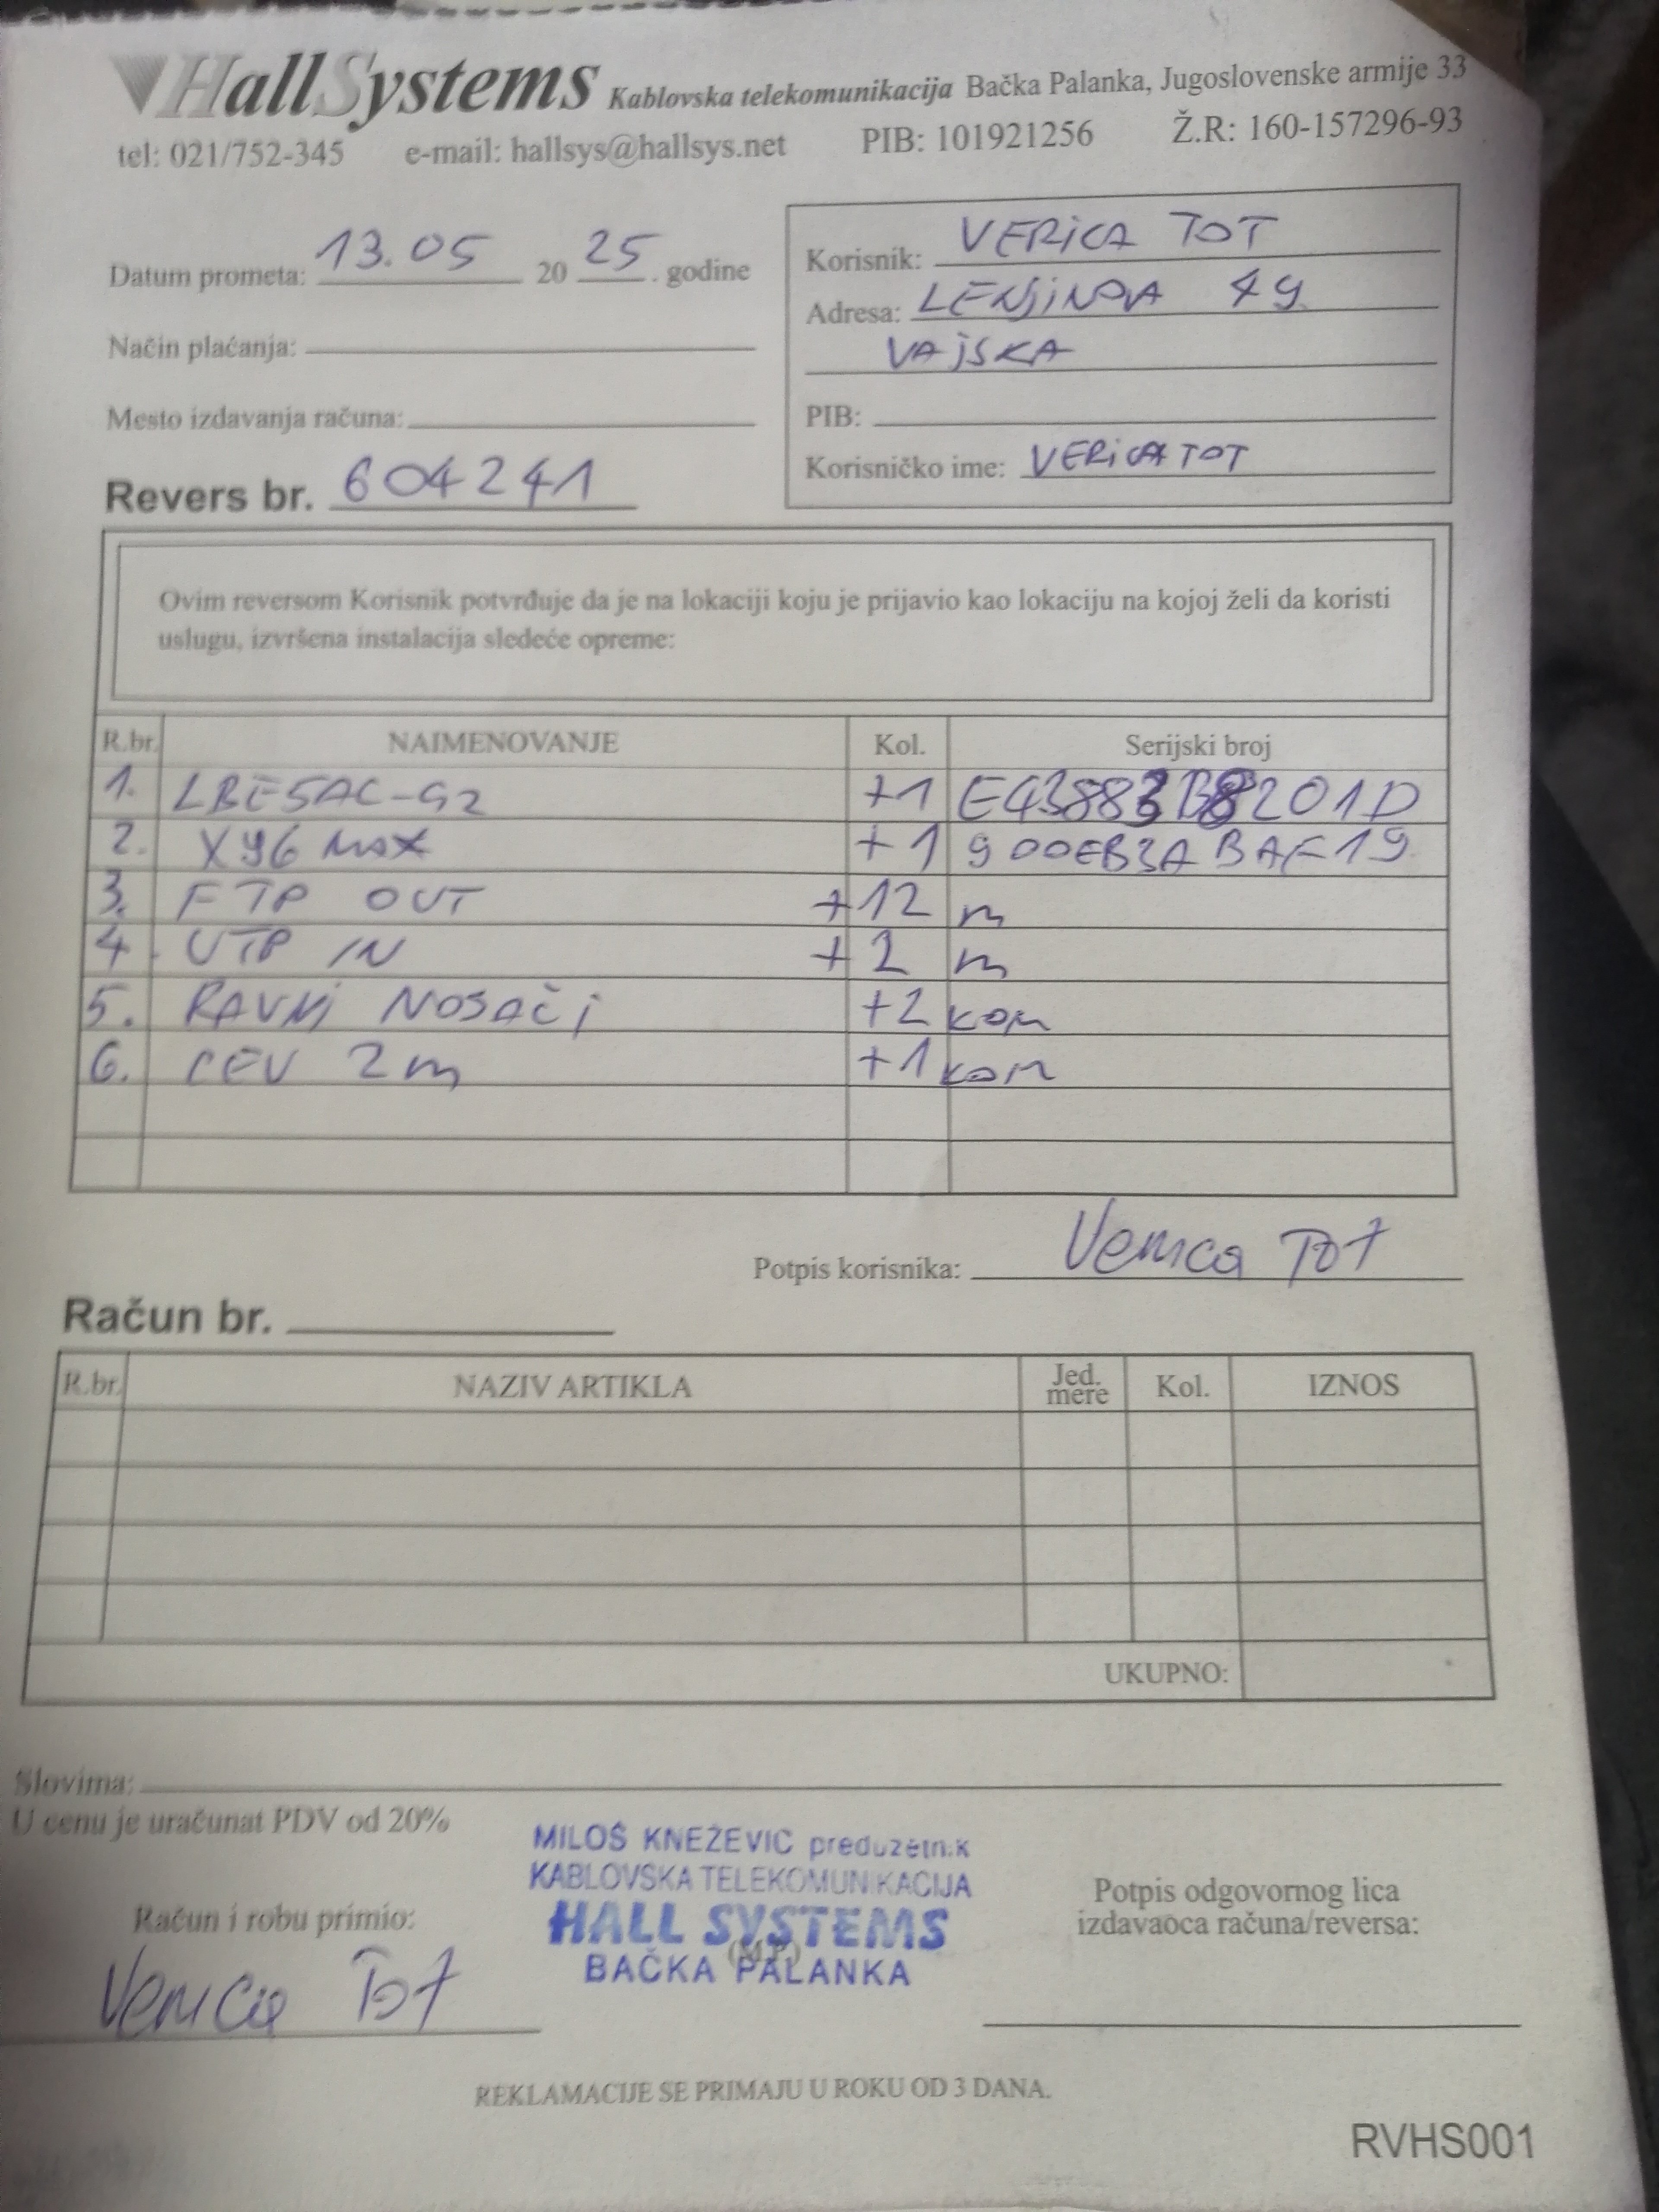 HallSystems Kablovska telekomunikacija Bačka Palanka, Jugoslovenske armije 33
tel: 021/752-345 e-mail: hallsys@hallsys.net PIB: 101921256 Ž.R: 160-157296-93
Datum prometa: 13.05 20 25. godine
Način plaćanja:
Mesto izdavanja računa:
Revers br. 604241
Korisnik: VERICA TOT
Adresa: LENJINOVA 49
VAJSKA
PIB:
Korisničko ime: VERICA TOT
Ovim reversom Korisnik potvrđuje da je na lokaciji koju je prijavio kao lokaciju na kojoj želi da koristi
uslugu, izvršena instalacija sledeće opreme:
R.br. NAIMENOVANJE Kol. Serijski broj
1. LBE5AC-G2 +1
2. X96 MAX +1 900EB3ABAF19
3. FTP OUT +12 m
4. UTP IN +2 m
5. RAVNI NOSAČI +2 kom
6. CEV 2m +1 kom
Potpis korisnika: Verica Tot
Račun br.
R.br. NAZIV ARTIKLA Jed. mere Kol. IZNOS
UKUPNO:
Slovima:
U cenu je uračunat PDV od 20%
MILOŠ KNEŽEVIĆ preduzetnik
KABLOVSKA TELEKOMUNIKACIJA
HALL SYSTEMS
(M.P.)
BAČKA PALANKA
Račun i robu primio:
Verica Tot
Potpis odgovornog lica
izdavaoca računa/reversa:
REKLAMACIJE SE PRIMAJU U ROKU OD 3 DANA.
RVHS001